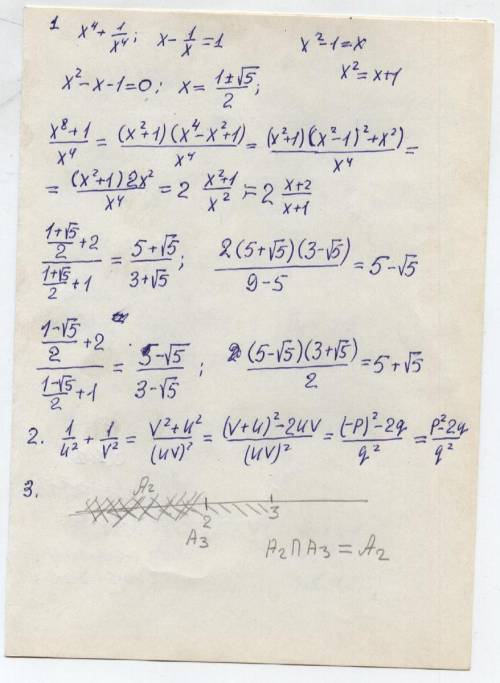 1 x⁴ + 1/x⁴ ; x - 1/x = 1 x² - 1 = x
x² - x - 1 = 0 ; x = (1±√5)/2 ; x² = x+1
(x⁸+1)/x⁴ = (x²+1)(x⁴-x²+1)/x⁴ = (x²+1)((x²-1)²+x²)/x⁴ =
= (x²+1)2x²/x⁴ = 2 (x²+1)/x² = 2 (x+2)/(x+1)
((1+√5)/2 + 2)/((1+√5)/2 + 1) = (5+√5)/(3+√5) ; 2(5+√5)(3-√5)/(9-5) = 5-√5
((1-√5)/2 + 2)/((1-√5)/2 + 1) = (5-√5)/(3-√5) ; 2(5-√5)(3+√5)/2 = 5+√5
2. 1/u² + 1/v² = (v²+u²)/(uv)² = ((v+u)²-2uv)/(uv)² = ((-p)²-2q)/q² = (p²-2q)/q²
3. A₂
2 3
A₃ A₂∩A₃ = A₂